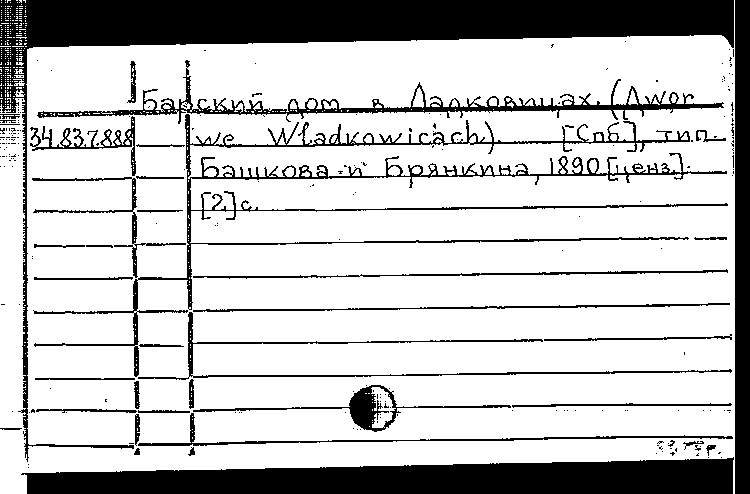 Барский дом в Ладковицах. (Дwor
34.83.7.888 we Wladkowicach). [Спб.], тип.
Башкова и Брянкина, 1890 [ценз.].
[2] с.